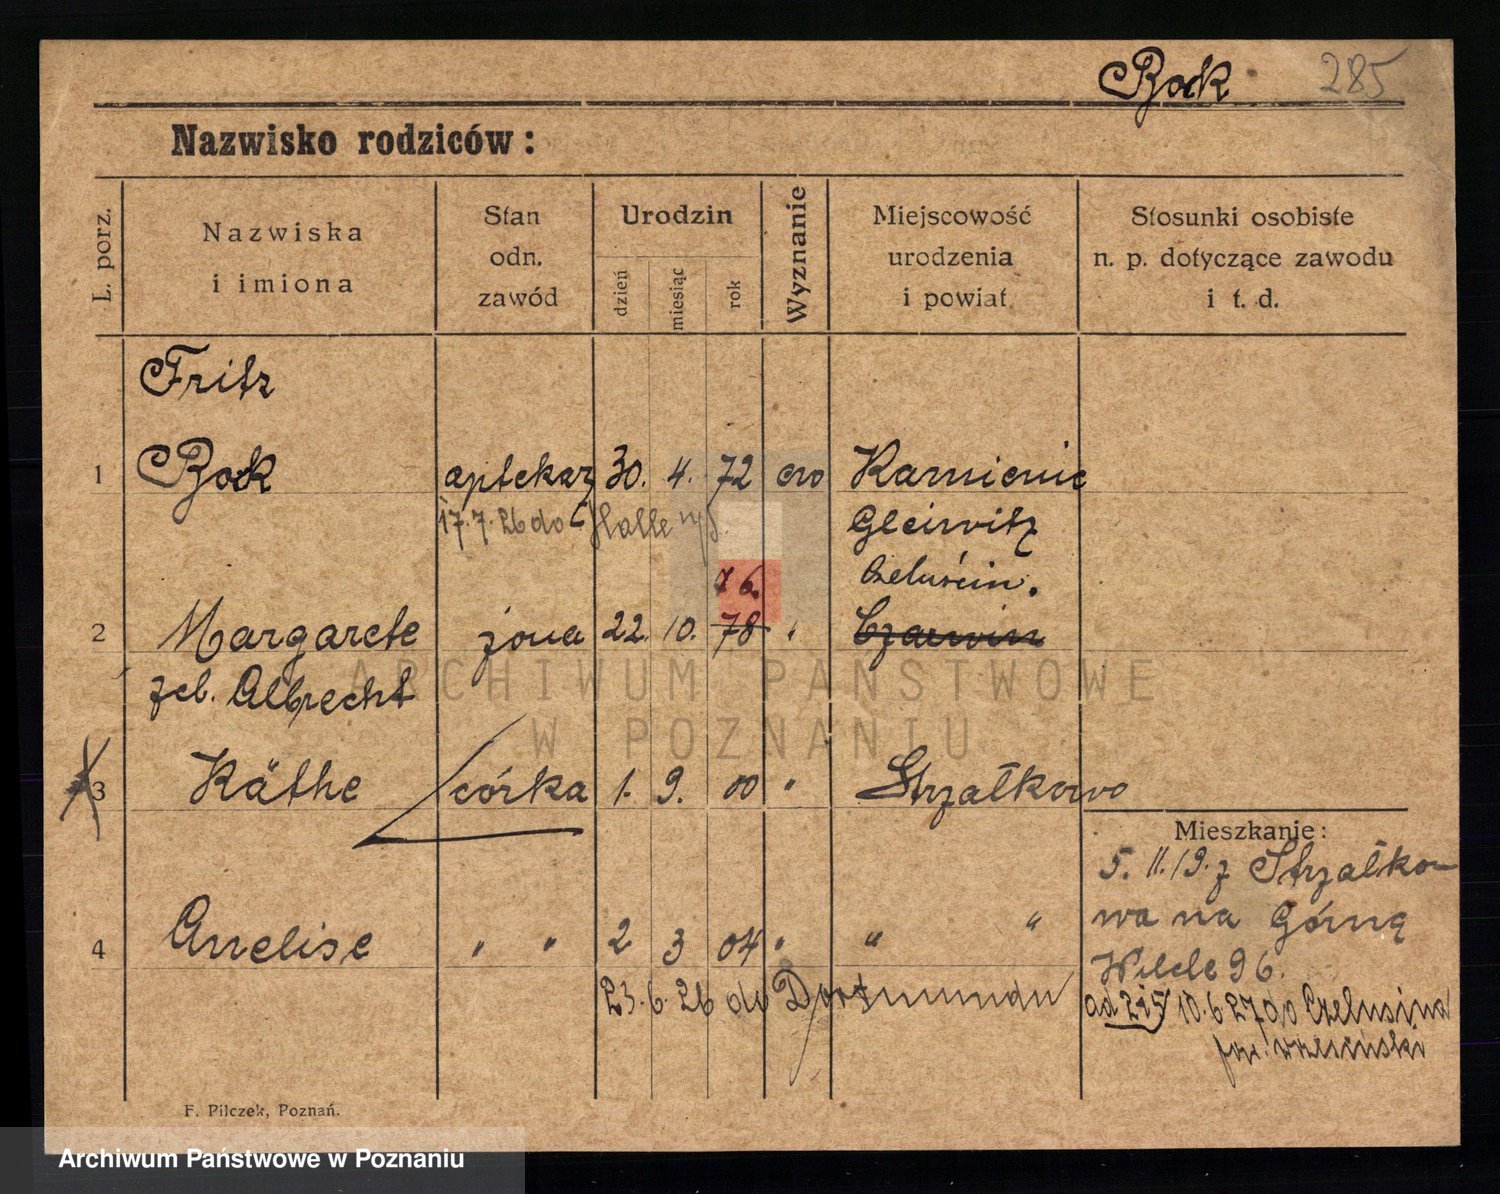 Bock
285
Nazwisko rodziców:
L. porz.
Nazwiska
i imiona
Stan
odn.
zawód
Urodzin
dzień
miesiąc
rok
Wyznanie
Miejscowość
urodzenia
i powiat
Stosunki osobiste
n. p. dotyczące zawodu
i t. d.
Fritz
1 Bock aptekarz 30. 4. 72 Kamienic
17.7.26 do Halle n/S. Gleiwitz
76. Czeluścin.
2 Margarete żona 22. 10. 78 " Czarwin
zeb. Albrecht
3 Käthe córka 1. 9. 00 " Strzałkowo
Mieszkanie:
5. 11. 19. z Strzałko-
wa na Górną
Wilde 96.
4 Anelise " " 2 3 04 " " "
23.6.26 do Dortmundu
ad 2 i 5 10.6 27 do Czelusina
pow. wrzesiński
F. Pilczek, Poznań.
ARCHIWUM PAŃSTWOWE
W POZNANIU
Archiwum Państwowe w Poznaniu